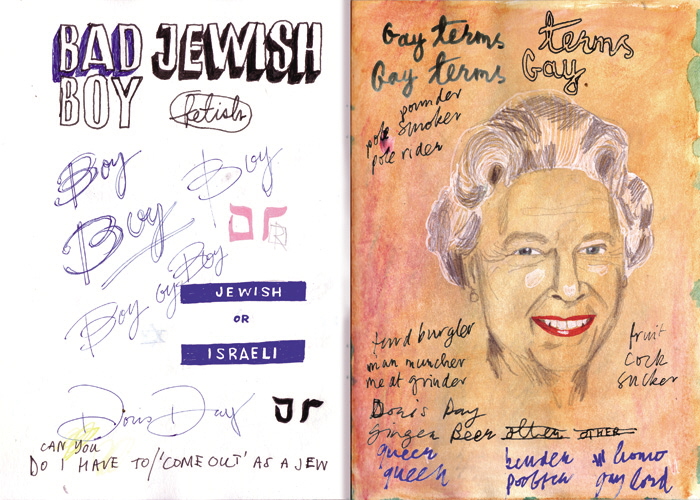 BAD JEWISH
BOY
fetish
Boy
Boy
Boy
Boy
Boy oy
JEWISH
OR
ISRAELI
Doris Day
CAN YOU
DO I HAVE TO/'COME OUT' AS A JEW
Gay terms
terms
Gay terms
Gay.
pole pounder
pole smoker
pole rider
turd burgler
man muncher
meat grinder
fruit
cock
sucker
Doris Day
Ginger Beer other OTHER
queer
queen
bender
poofster
homo
gay lord